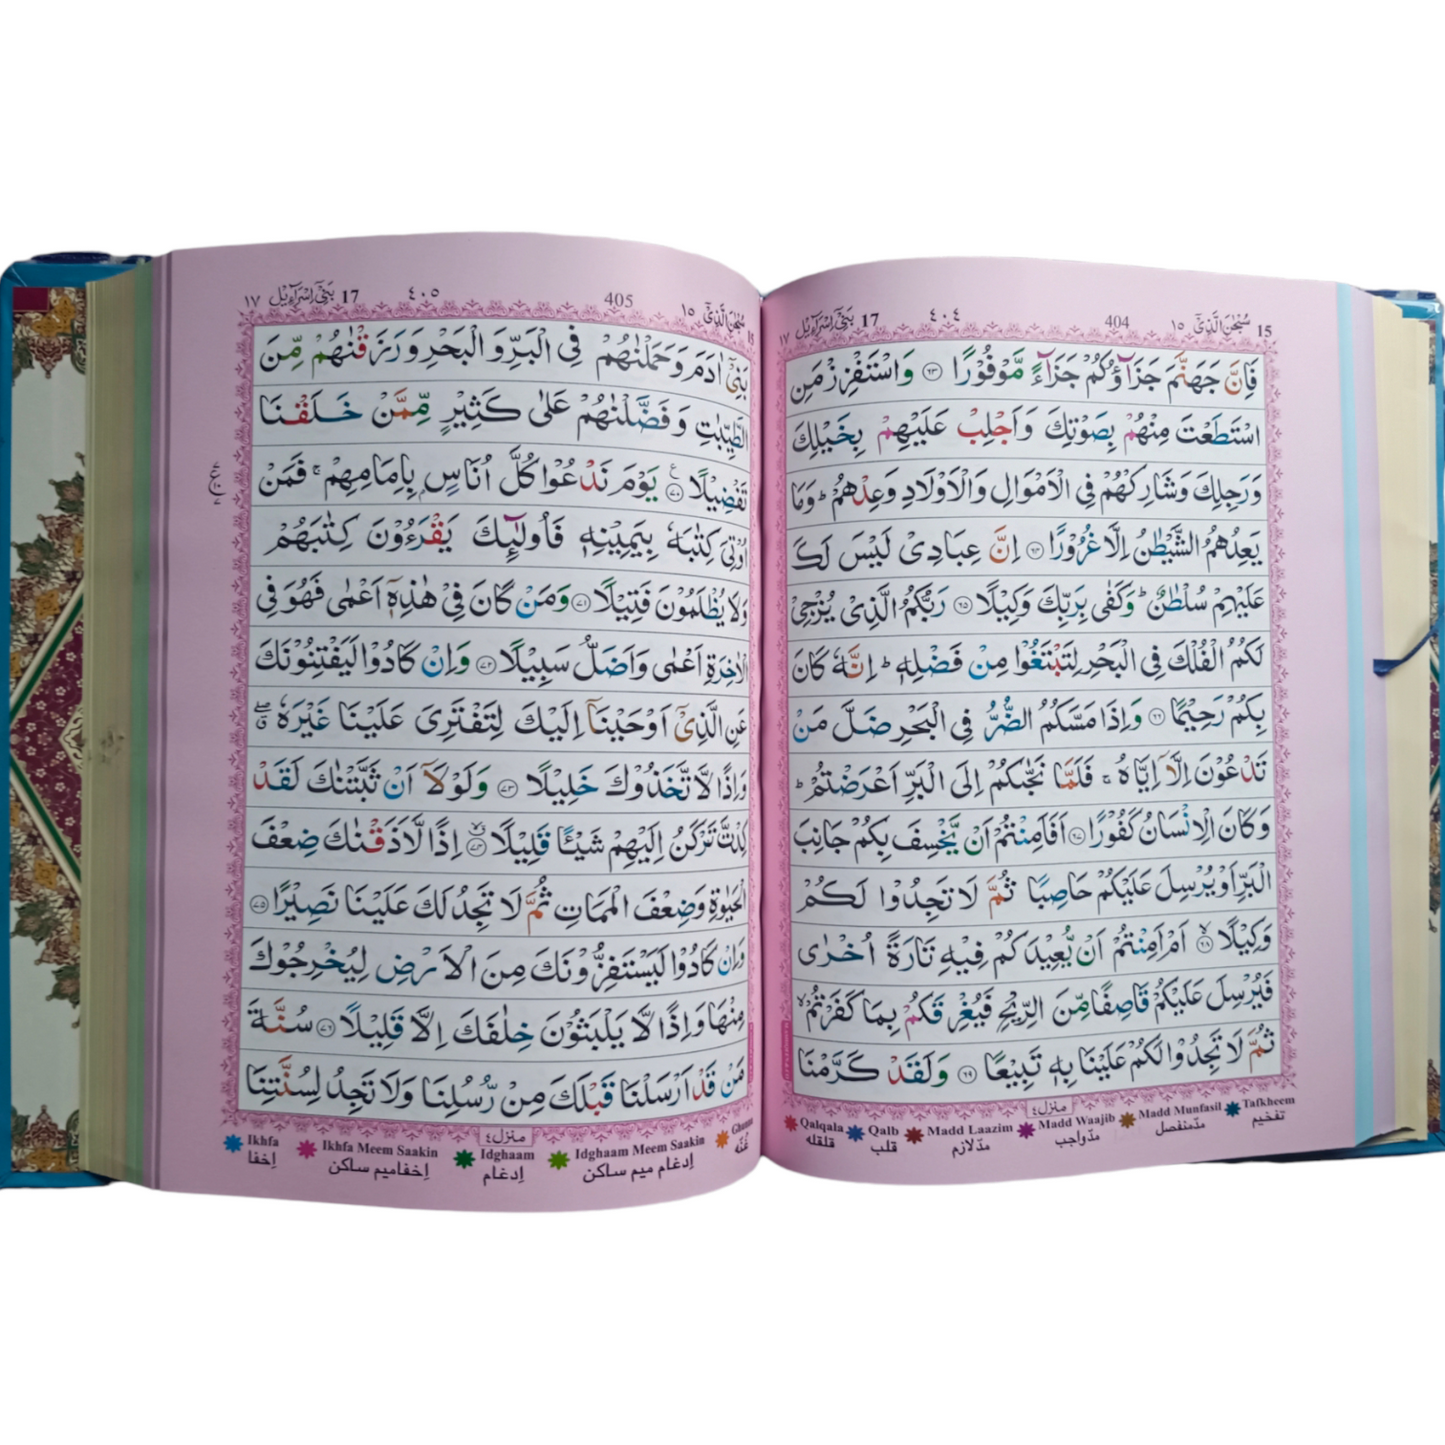 15 سُبْحٰنَ الَّذِيْٓ ١٥ 404 ٤٠٤ 17 بَنِيْٓ اِسْرَآءِيْل ١٧
فَاِنَّ جَهَنَّمَ جَزَآؤُكُمْ جَزَآءً مَّوْفُوْرًا ﴿٦٣﴾ وَاسْتَفْزِزْ مَنِ
اسْتَطَعْتَ مِنْهُمْ بِصَوْتِكَ وَاَجْلِبْ عَلَيْهِمْ بِخَيْلِكَ
وَرَجِلِكَ وَشَارِكْهُمْ فِي الْاَمْوَالِ وَالْاَوْلَادِ وَعِدْهُمْ ؕ وَمَا
يَعِدُهُمُ الشَّيْطٰنُ اِلَّا غُرُوْرًا ﴿٦٤﴾ اِنَّ عِبَادِيْ لَيْسَ لَكَ
عَلَيْهِمْ سُلْطٰنٌ ؕ وَكَفٰى بِرَبِّكَ وَكِيْلًا ﴿٦٥﴾ رَبُّكُمُ الَّذِيْ يُزْجِيْ
لَكُمُ الْفُلْكَ فِي الْبَحْرِ لِتَبْتَغُوْا مِنْ فَضْلِهٖ ؕ اِنَّهٗ كَانَ
بِكُمْ رَحِيْمًا ﴿٦٦﴾ وَاِذَا مَسَّكُمُ الضُّرُّ فِي الْبَحْرِ ضَلَّ مَنْ
تَدْعُوْنَ اِلَّآ اِيَّاهُ ۚ فَلَمَّا نَجّٰىكُمْ اِلَى الْبَرِّ اَعْرَضْتُمْ ؕ
وَكَانَ الْاِنْسَانُ كَفُوْرًا ﴿٦٧﴾ اَفَاَمِنْتُمْ اَنْ يَّخْسِفَ بِكُمْ جَانِبَ
الْبَرِّ اَوْ يُرْسِلَ عَلَيْكُمْ حَاصِبًا ثُمَّ لَا تَجِدُوْا لَكُمْ
وَكِيْلًا ﴿٦٨﴾ اَمْ اَمِنْتُمْ اَنْ يُّعِيْدَكُمْ فِيْهِ تَارَةً اُخْرٰى
فَيُرْسِلَ عَلَيْكُمْ قَاصِفًا مِّنَ الرِّيْحِ فَيُغْرِقَكُمْ بِمَا كَفَرْتُمْ ۙ
ثُمَّ لَا تَجِدُوْا لَكُمْ عَلَيْنَا بِهٖ تَبِيْعًا ﴿٦٩﴾ وَلَقَدْ كَرَّمْنَا
منزل ٤
Qalqala Qalb Madd Laazim Madd Waajib Madd Munfasil Tafkheem
قلقله قلب مدّلازم مدّواجب مدّمنفصل تفخيم
15 سُبْحٰنَ الَّذِيْٓ ١٥ 405 ٤٠٥ 17 بَنِيْٓ اِسْرَآءِيْل ١٧
بَنِيْٓ اٰدَمَ وَحَمَلْنٰهُمْ فِي الْبَرِّ وَالْبَحْرِ وَرَزَقْنٰهُمْ مِّنَ
الطَّيِّبٰتِ وَفَضَّلْنٰهُمْ عَلٰى كَثِيْرٍ مِّمَّنْ خَلَقْنَا
تَفْضِيْلًا ﴿٧٠﴾ يَوْمَ نَدْعُوْا كُلَّ اُنَاسٍۭ بِاِمَامِهِمْ ۚ فَمَنْ
اُوْتِيَ كِتٰبَهٗ بِيَمِيْنِهٖ فَاُولٰٓئِكَ يَقْرَءُوْنَ كِتٰبَهُمْ
وَلَا يُظْلَمُوْنَ فَتِيْلًا ﴿٧١﴾ وَمَنْ كَانَ فِيْ هٰذِهٖٓ اَعْمٰى فَهُوَ فِي
الْاٰخِرَةِ اَعْمٰى وَاَضَلُّ سَبِيْلًا ﴿٧٢﴾ وَاِنْ كَادُوْا لَيَفْتِنُوْنَكَ
عَنِ الَّذِيْٓ اَوْحَيْنَآ اِلَيْكَ لِتَفْتَرِيَ عَلَيْنَا غَيْرَهٗ
وَاِذًا لَّاتَّخَذُوْكَ خَلِيْلًا ﴿٧٣﴾ وَلَوْلَآ اَنْ ثَبَّتْنٰكَ لَقَدْ
كِدْتَّ تَرْكَنُ اِلَيْهِمْ شَيْئًا قَلِيْلًا ﴿٧٤﴾ اِذًا لَّاَذَقْنٰكَ ضِعْفَ
الْحَيٰوةِ وَضِعْفَ الْمَمَاتِ ثُمَّ لَا تَجِدُ لَكَ عَلَيْنَا نَصِيْرًا ﴿٧٥﴾
وَاِنْ كَادُوْا لَيَسْتَفِزُّوْنَكَ مِنَ الْاَرْضِ لِيُخْرِجُوْكَ
مِنْهَا وَاِذًا لَّا يَلْبَثُوْنَ خِلٰفَكَ اِلَّا قَلِيْلًا ﴿٧٦﴾ سُنَّةَ
مَنْ قَدْ اَرْسَلْنَا قَبْلَكَ مِنْ رُّسُلِنَا وَلَا تَجِدُ لِسُنَّتِنَا
منزل ٤
Ikhfa Ikhfa Meem Saakin Idghaam Idghaam Meem Saakin Ghunna
اِخفَا اِخفَاميم ساكن اِدغَام اِدغَام ميم ساكن غُنّه